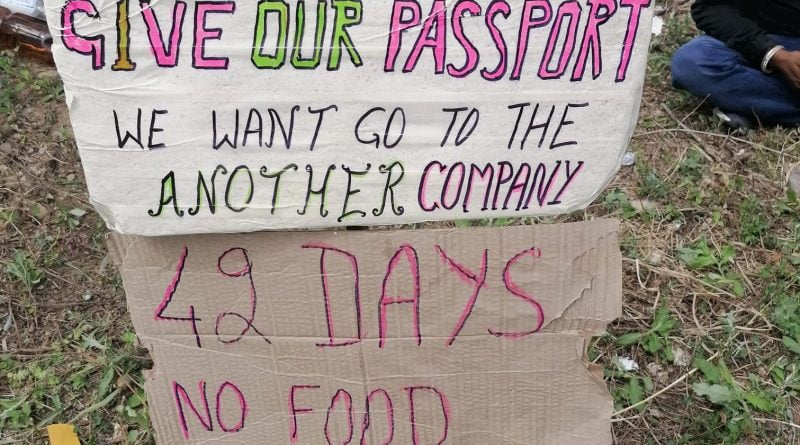 GIVE OUR PASSPORT
WE WANT GO TO THE
ANOTHER COMPANY
42 DAYS
NO FOOD